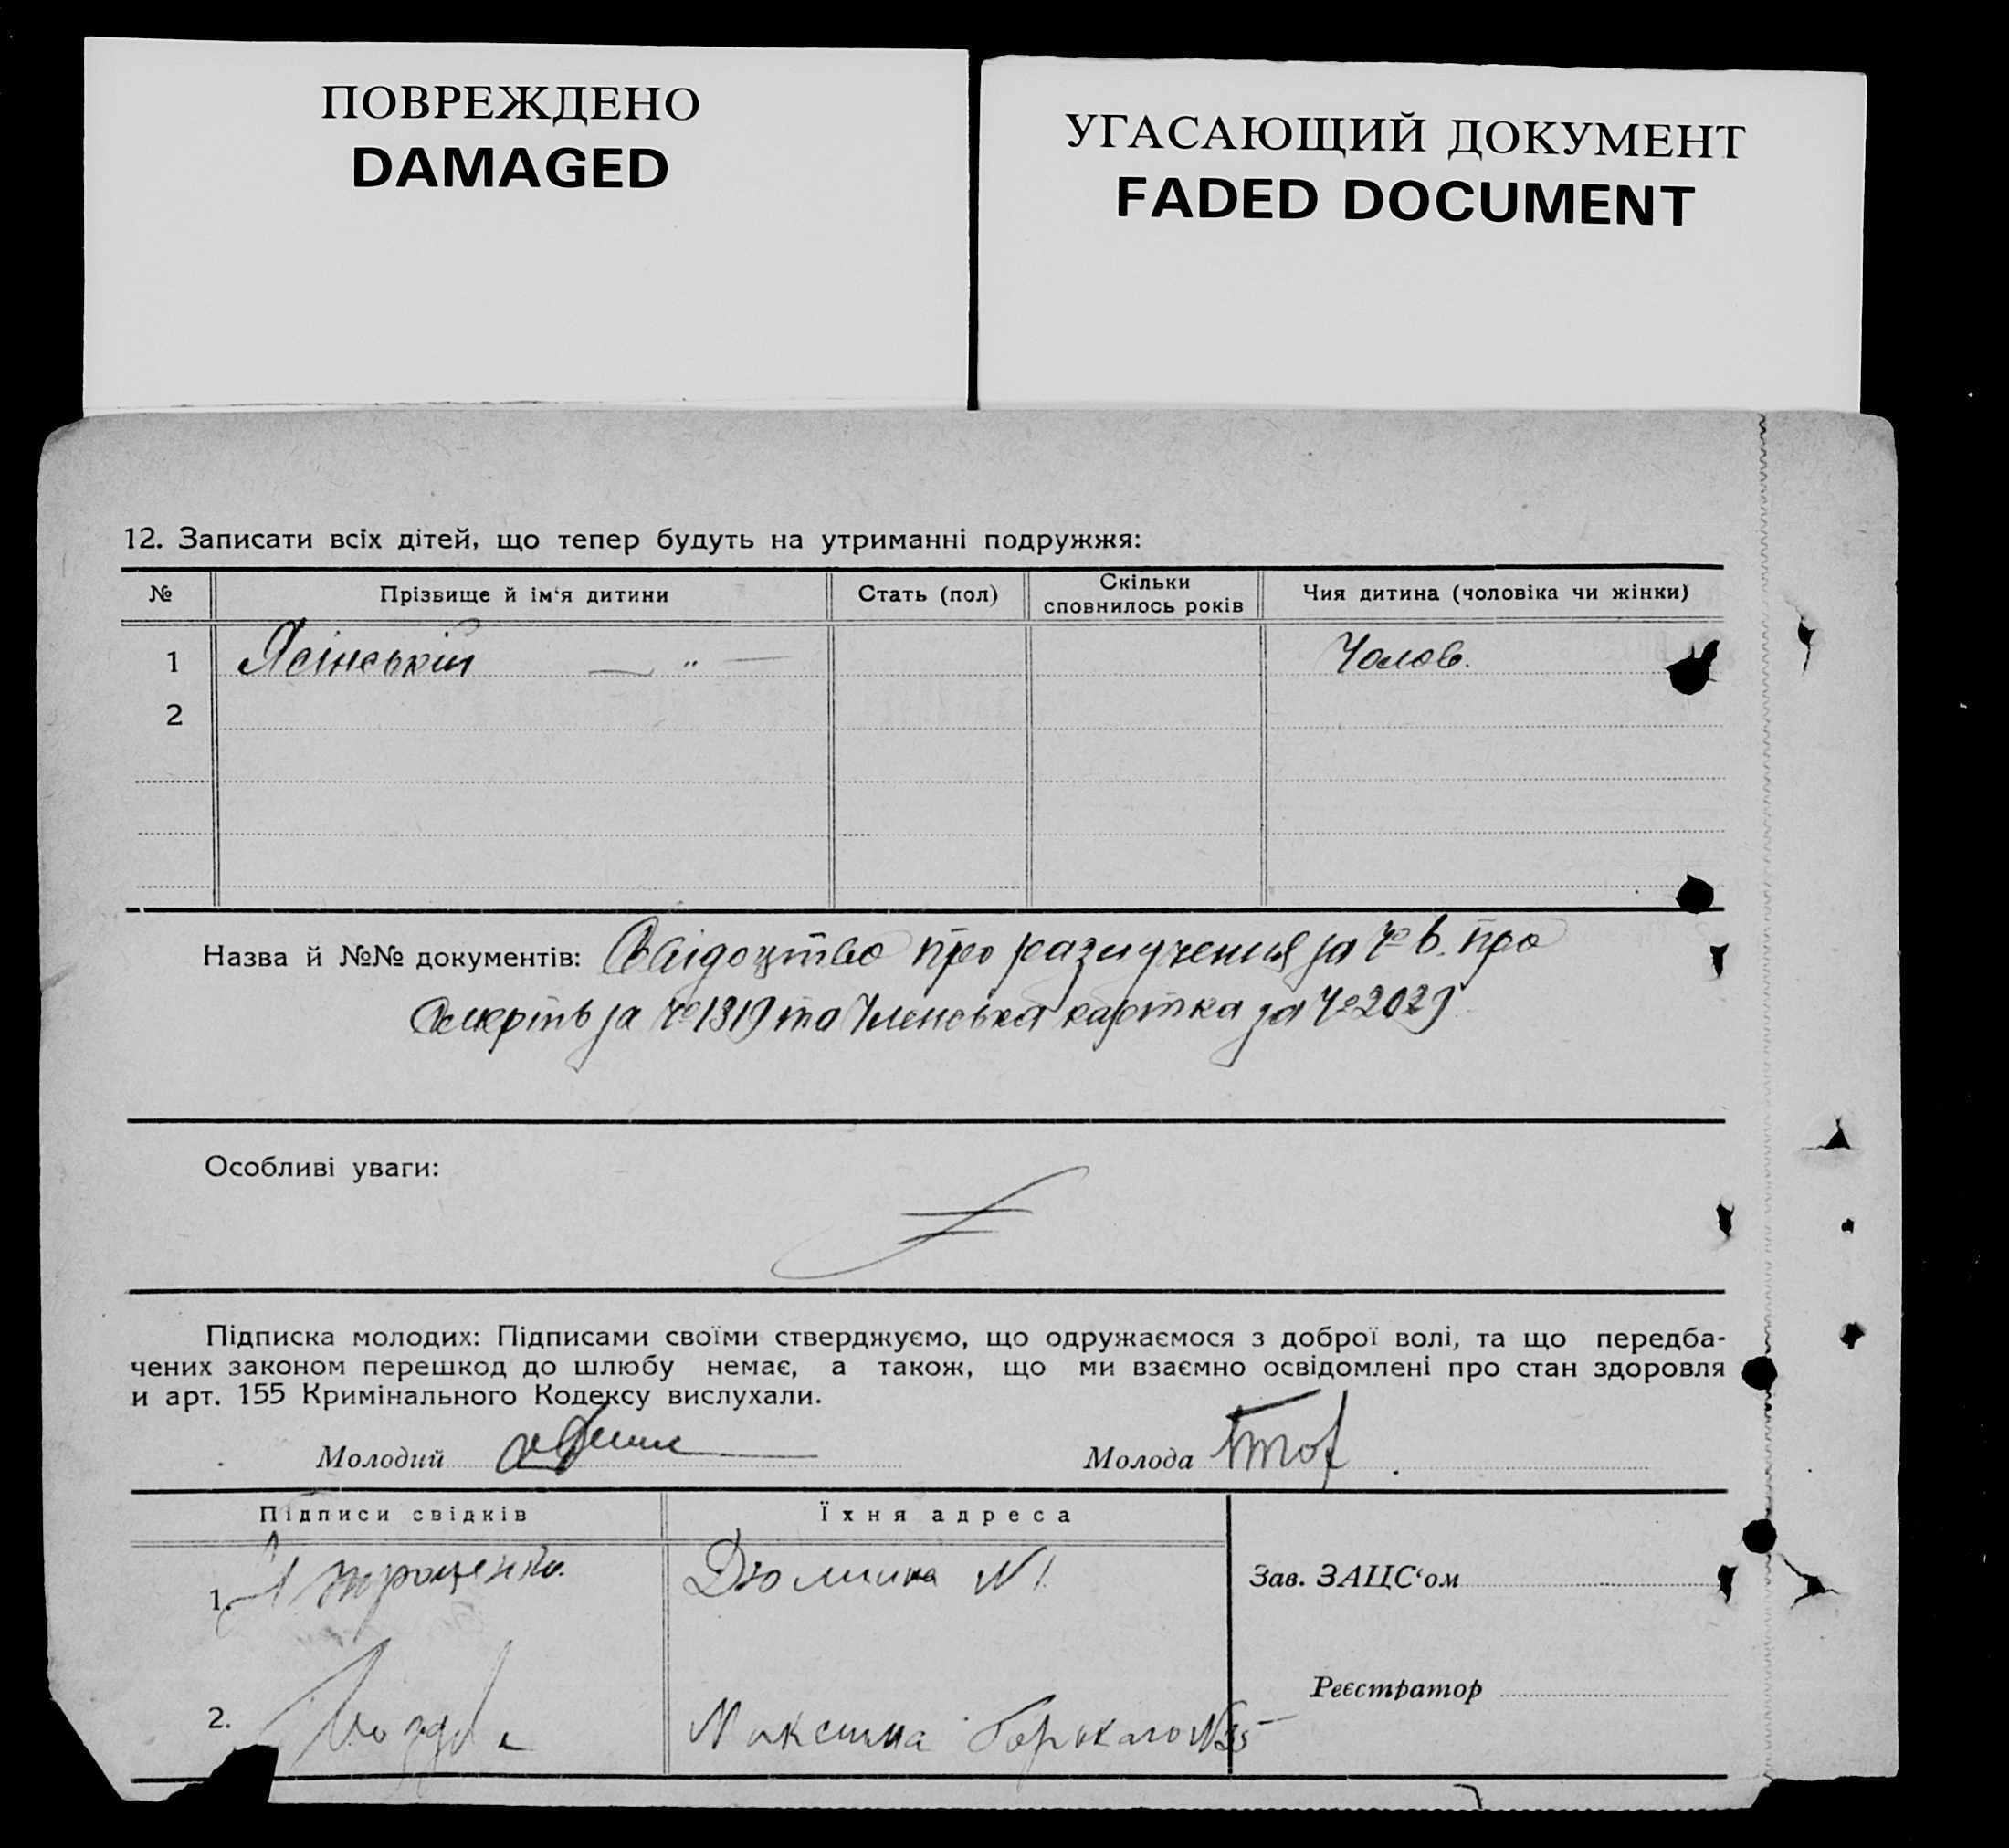 ПОВРЕЖДЕНО
DAMAGED
УГАСАЮЩИЙ ДОКУМЕНТ
FADED DOCUMENT
12. Записати всіх дітей, що тепер будуть на утриманні подружжя:
№ Прізвище й ім‘я дитини Стать (пол) Скільки сповнилось років Чия дитина (чоловіка чи жінки)
1 Ясінській — „ — Чолов.
2
Назва й №№ документів: Свідоцтво про разлучення за Чо в. про
Смерть за Чо 1319 та Членська картка за Чо 2029
Особливі уваги:
Підписка молодих: Підписами своїми стверджуємо, що одружаємося з доброї волі, та що передба-
чених законом перешкод до шлюбу немає, а також, що ми взаємно освідомлені про стан здоровля
и арт. 155 Кримінального Кодексу вислухали.
Молодий Молода
Підписи свідків Їхня адреса
1. Дюміна N 1
Зав. ЗАЦС‘ом
Реєстратор
2. Максима Горькаго N 35